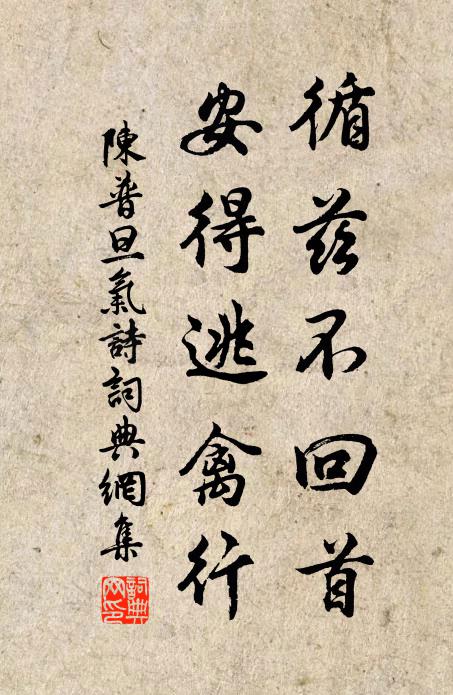 循茲不回首
安得逃禽行
陳普旦氣詩詞典網集
詞典網印